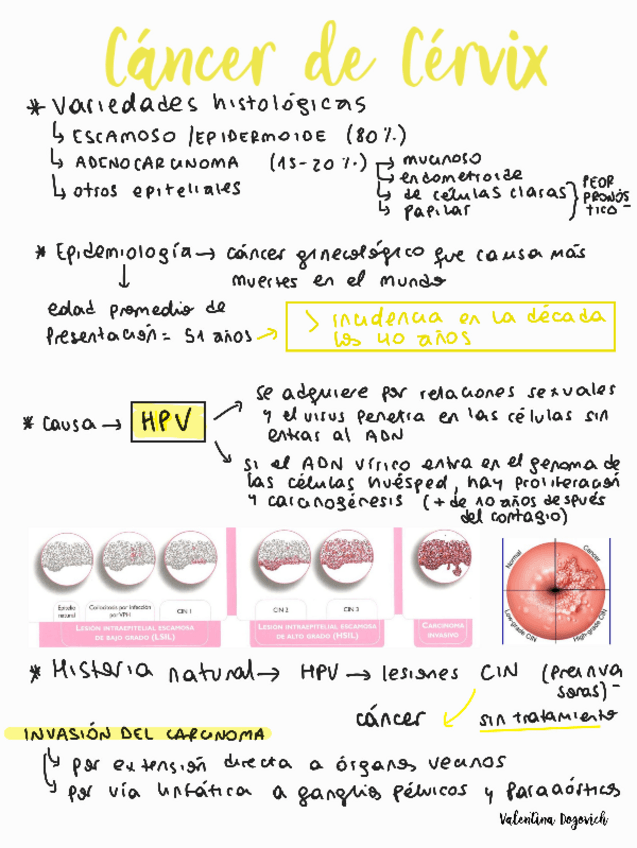 Cáncer de Cérvix
* Variedades histológicas
↳ ESCAMOSO / EPIDERMOIDE (80%)
↳ ADENOCARCINOMA (15-20%) → mucinoso
↳ endometroide
↳ otros epiteliales
↳ de células claras
↳ papilar
PEOR
PRONÓS-
TICO
* Epidemiología → cáncer ginecológico que causa más
muertes en el mundo
edad promedio de
Presentación = 51 años →
> incidencia en la década
los 40 años
* causa → HPV
se adquiere por relaciones sexuales
y el virus penetra en las células sin
entrar al ADN
si el ADN vírico entra en el genoma de
las células huésped, hay proliferación
y carcinogénesis (+ de 10 años después
del contagio)
Epitelio
natural
Coilocitosis por infección
por VPH
CIN 1
CIN 2
CIN 3
LESIÓN INTRAEPITELIAL ESCAMOSA
DE BAJO GRADO (LSIL)
LESIÓN INTRAEPITELIAL ESCAMOSA
DE ALTO GRADO (HSIL)
CARCINOMA
INVASIVO
Normal
Cancer
Low-grade CIN
High-grade CIN
* Historia natural → HPV → lesiones CIN (preinva
soras)-
cáncer
sin tratamiento
INVASIÓN DEL CARCINOMA
↳ por extensión directa a órganos vecinos
↳ por vía linfática a ganglios pélvicos y paraaórticos
Valentina Dogovich